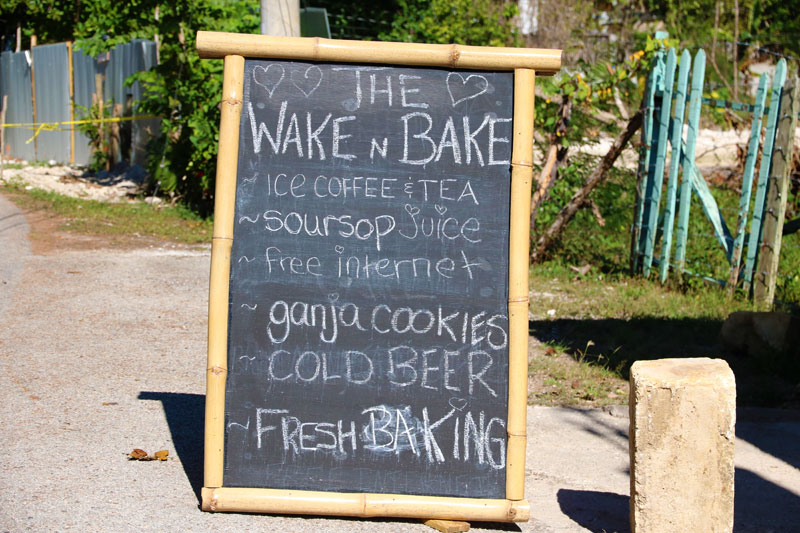 THE
WAKE N BAKE
~ ICE COFFEE & TEA
~ SOURSOP JUICE
~ free internet
~ ganja COOKIES
~ COLD BEER
~ FRESH BAKING